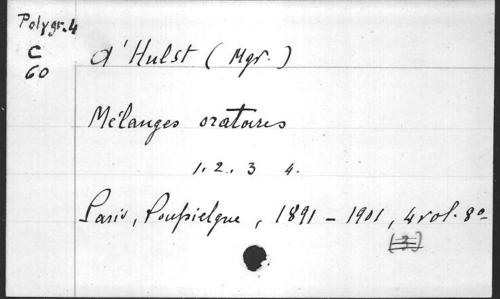 Polygr. 4
C
60
d'Hulst (Mgr.)
Mélanges oratoires
1. 2.. 3 4.
Paris, Poussielgue, 1891 - 1901, 4 vol. 8º
(3)